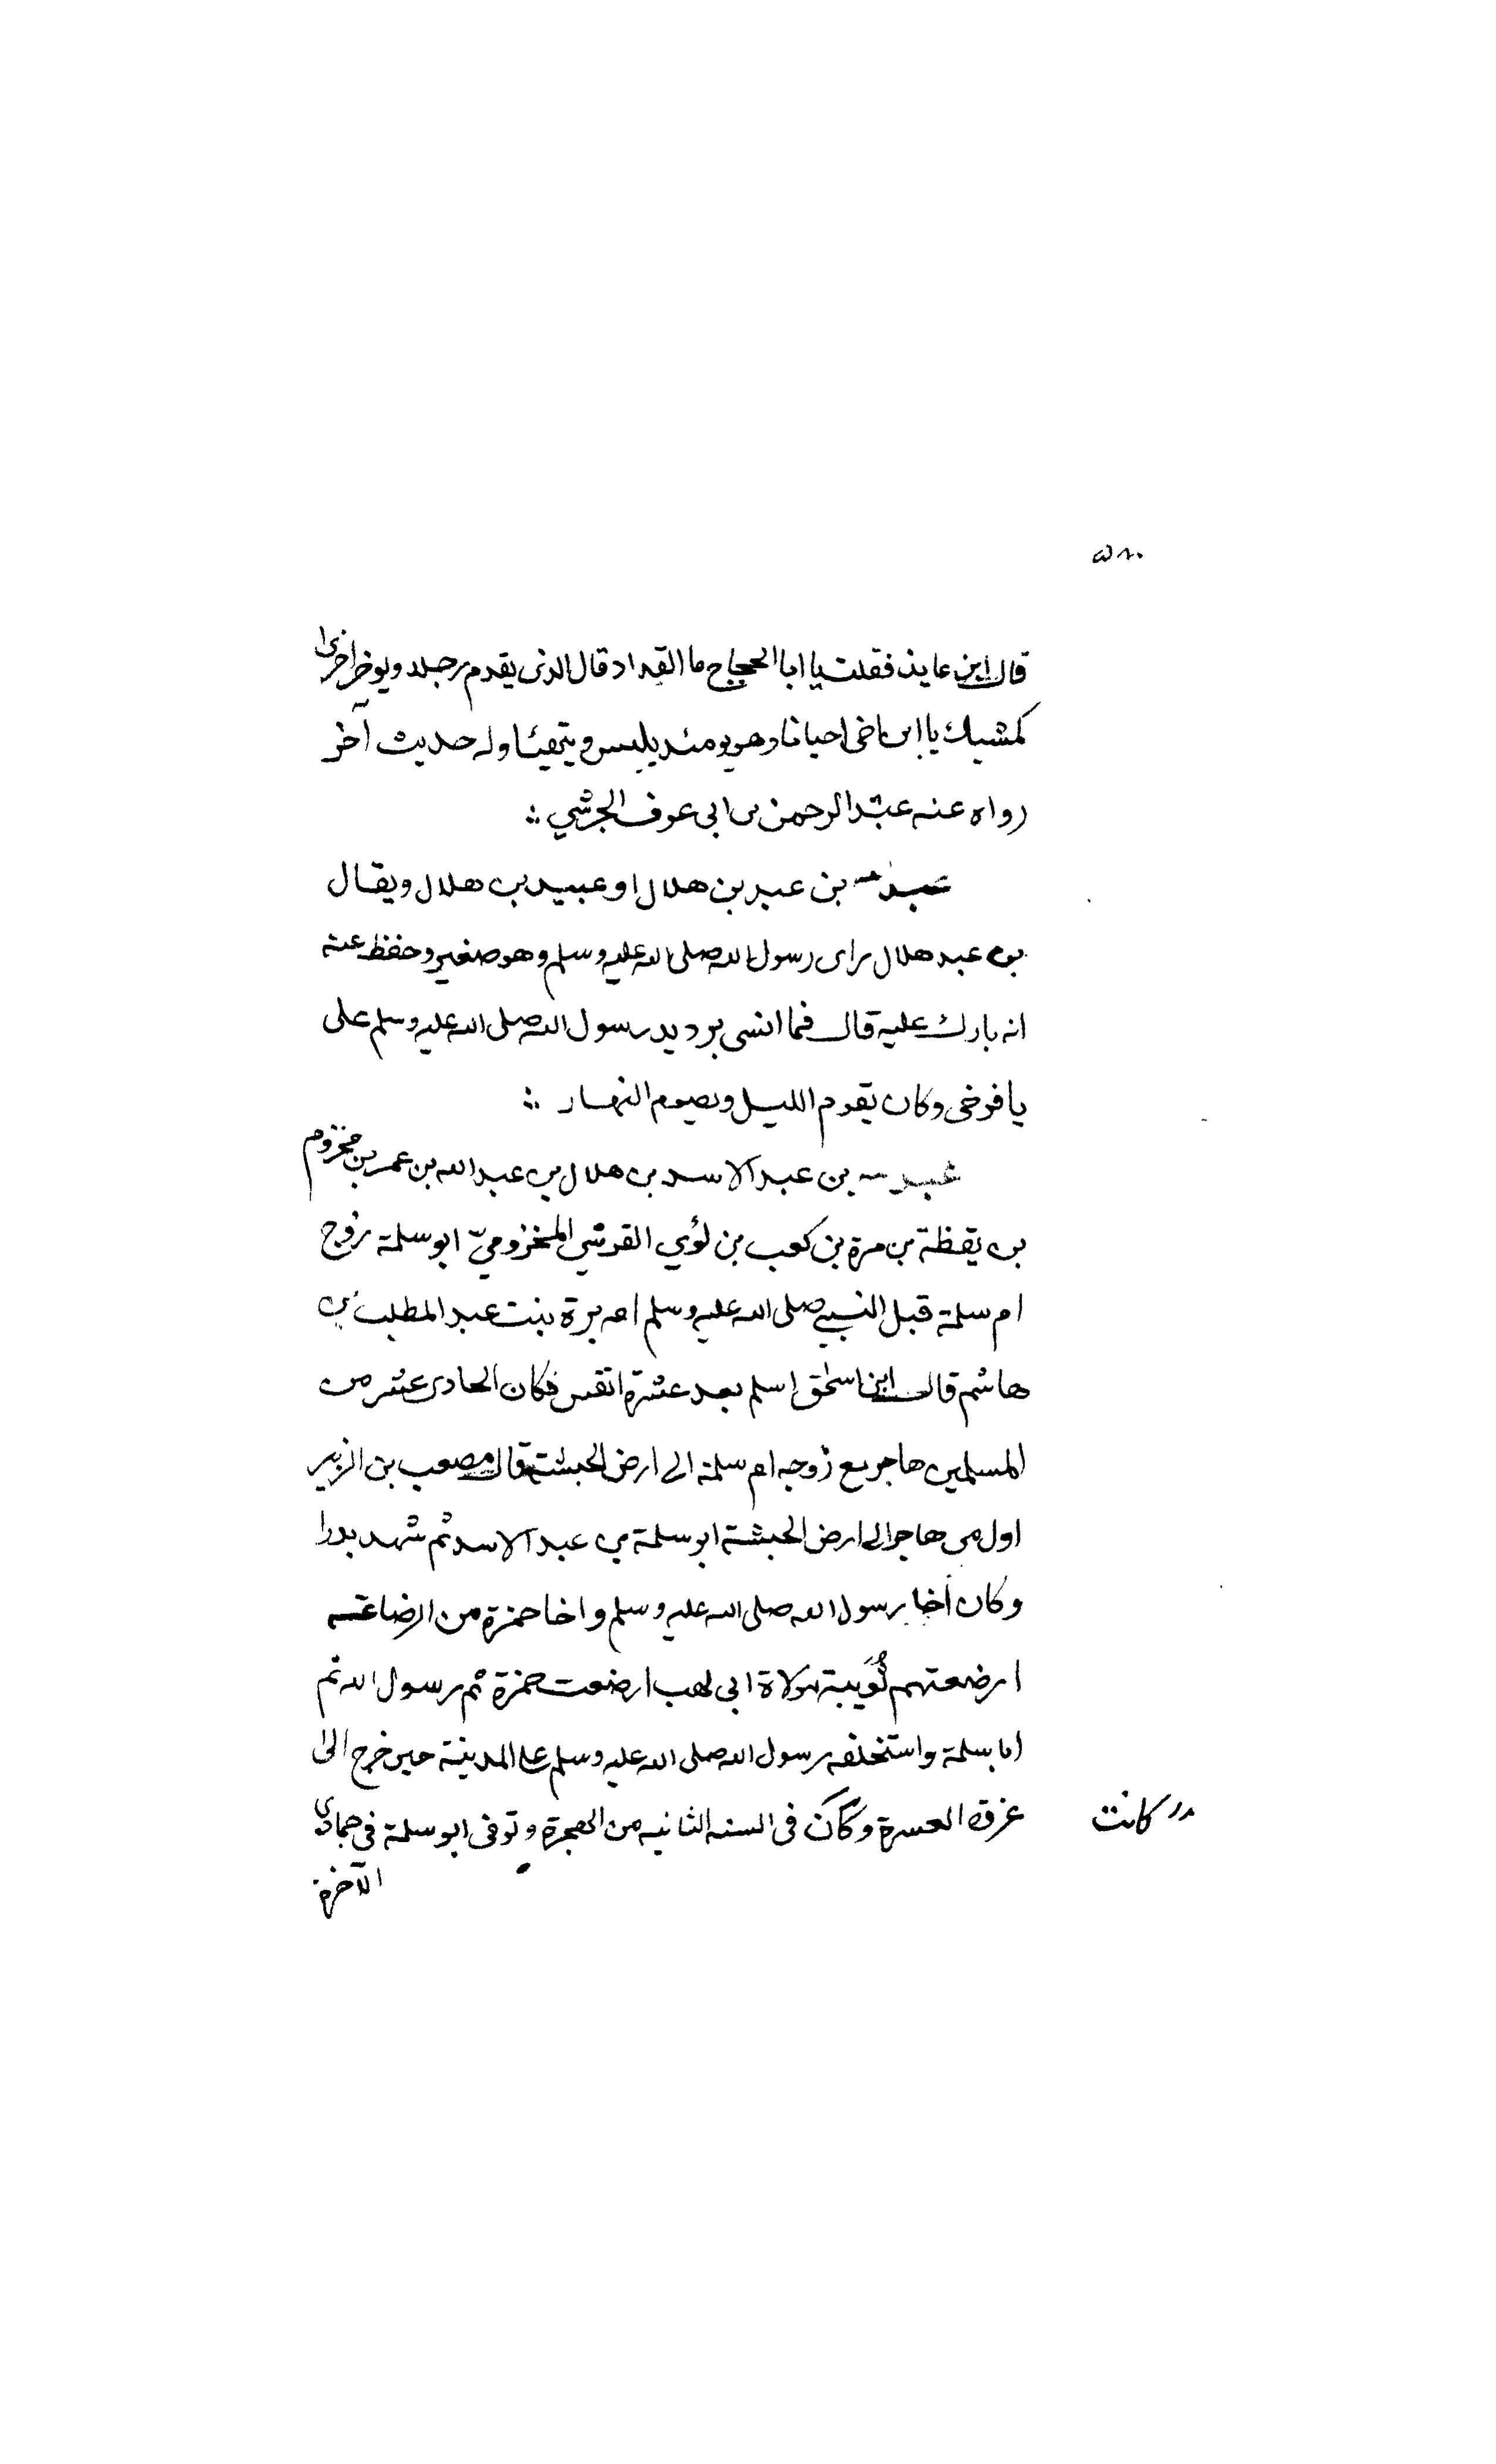 ٥٨٠
قال ابن عايذ فقلت يا ابا الحجاج ما الفداد قال الذي يقدم رجلا ويوخر اخرى
كمشيك يا ابن اخى احيانا وهو يومئذ يلبس ويتهيئا وله حديث آخر
رواه عنه عبد الرحمن بن ابى عوف الجرشي
عبد الله بن عبد بن هلال او عبيد بن هلال ويقال
بن عبد هلال راى رسول الله صلى الله عليه وسلم وهو صغير وحفظ عنه
انه بارك عليه قال فما انسى برد يد رسول الله صلى الله عليه وسلم على
يافوخى وكان يقوم الليل ويصوم النهار
عبد الله بن عبد الاسد بن هلال بن عبد الله بن عمر بن مخزوم
بن يقظة بن مرة بن كعب بن لؤي القرشي المخزوميّ ابو سلمة زوج
ام سلمة قبل النبي صلى الله عليه وسلم امه برة بنت عبد المطلب بن
هاشم قال ابن اسحق اسلم بعد عشرة انفس فكان الحادى عشر من
المسلمين هاجر مع زوجه ام سلمة الى ارض الحبشة قال مصعب بن الزبير
اول من هاجر الى ارض الحبشة ابو سلمة بن عبد الاسد ثم شهد بدرا
وكان أخا رسول الله صلى الله عليه وسلم واخا حمزة من الرضاعة
ارضعتهم ثُوَيبة مولاة ابى لهب ارضعت حمزة ثم رسول الله ثم
ابا سلمة واستخلفه رسول الله صلى الله عليه وسلم على المدينة حين خرج الى
غزوة العسرة وكان فى السنه الثانيه من الهجرة وتوفى ابو سلمة فى جمادى
كانت
الآخرة